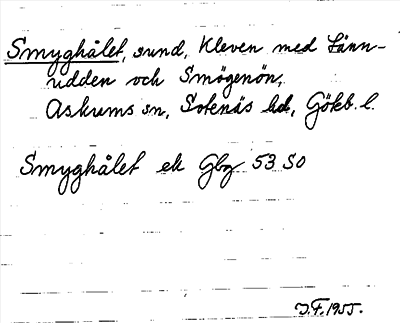 Smyghålet, sund, Kleven med Tånn-
udden och Smögenön,
Askums sn, Sotenäs hd, Göteb. l.
Smyghålet ek Gbg 53 SO
J.F. 1955.